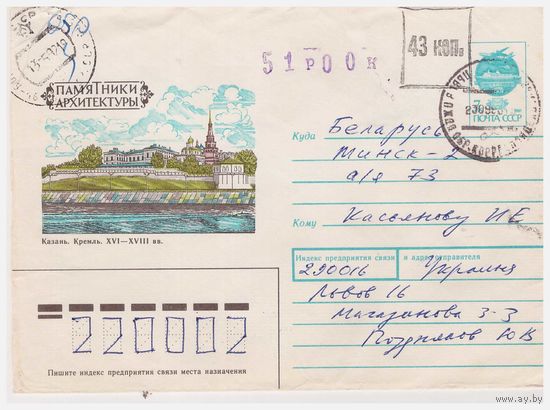 43 коп.
51Р00К
ПОЧТА СССР
ПАМЯТНИКИ
АРХИТЕКТУРЫ
Казань. Кремль. XVI—XVIII вв.
Куда Беларусь
Минск-2
а/я 73
Кому Касьянову И Е
Индекс предприятия связи и адрес отправителя
290016 Украина
Львов 16
Магазинова 3-3
Ю В
220002
Пишите индекс предприятия связи места назначения
www.ay.by